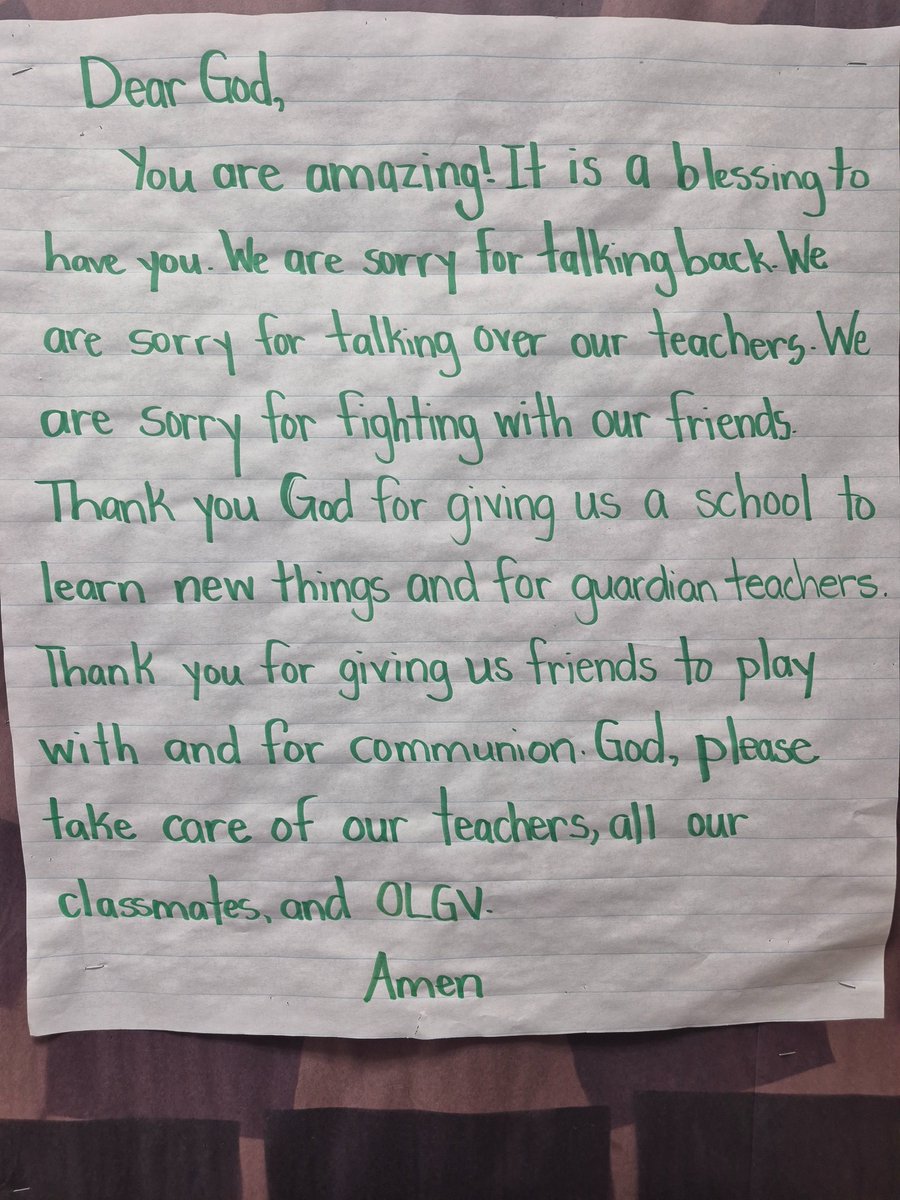 Dear God,
You are amazing! It is a blessing to
have you. We are sorry for talking back. We
are sorry for talking over our teachers. We
are sorry for fighting with our friends.
Thank you God for giving us a school to
learn new things and for guardian teachers.
Thank you for giving us friends to play
with and for communion. God, please
take care of our teachers, all our
classmates, and OLGV.
Amen